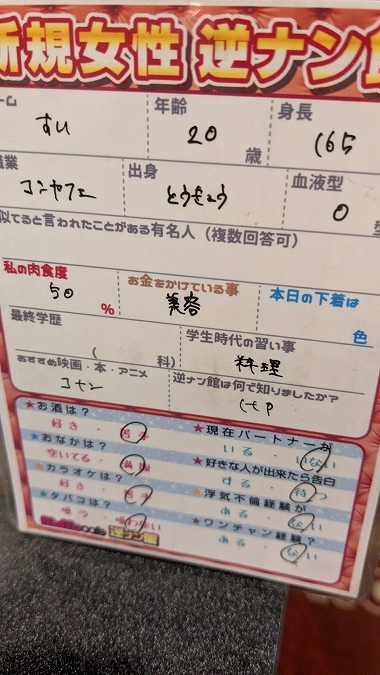 新規女性 逆ナン館
ーム 年齢 身長
すい 20 歳 165
職業 出身 血液型
コンカフェ とうきょう O 型
似てると言われたことがある有名人(複数回答可)
私の肉食度 お金をかけている事 本日の下着は
50 % 美容 色
最終学歴 学生時代の習い事
( 科) 料理
おすすめ映画・本・アニメ 逆ナン館は何で知りましたか?
コナン HP
★お酒は? ★現在パートナーが
好き・苦手 いる・いない
★おなかは? ★好きな人が出来たら告白
空いてる・満腹 する・待つ
★カラオケは? ★浮気不倫経験が
好き・苦手 ある・ない
★タバコは? ★ワンチャン経験?
吸う・吸わない ある・ない
逆ナン館